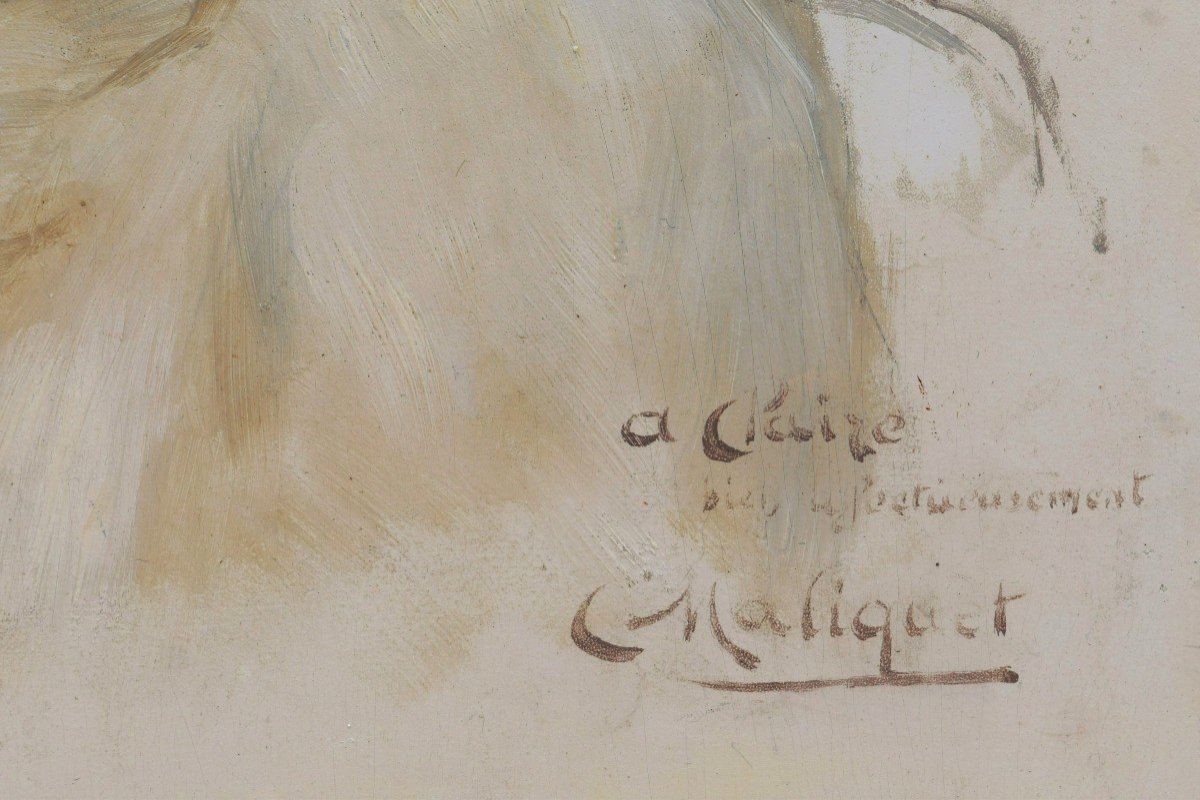 a Claire
bien affectueusement
Maliquet